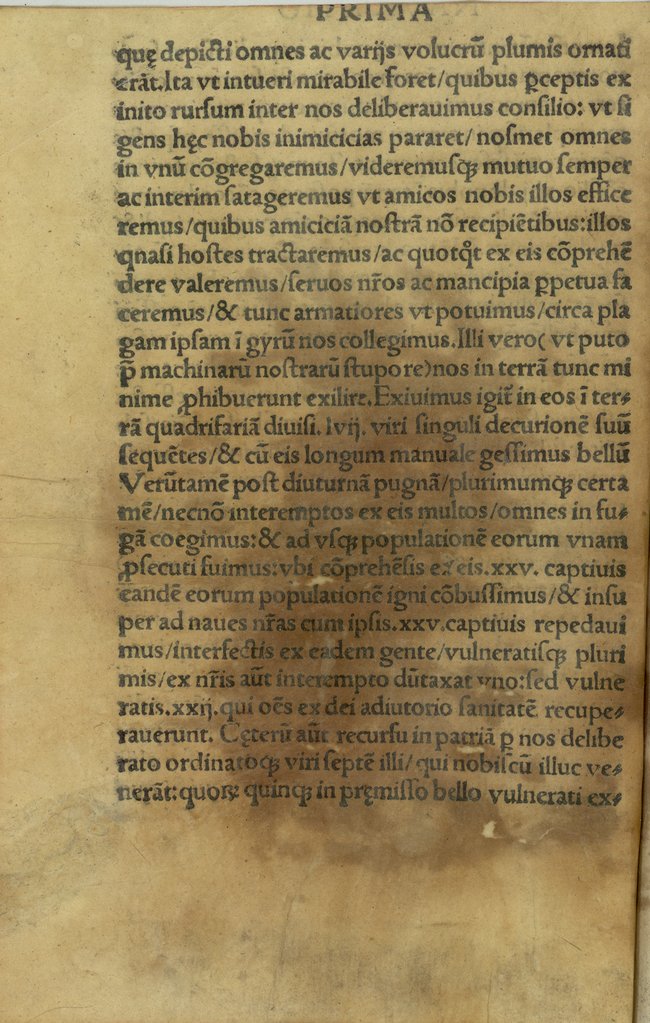 PRIMA
quę depicti omnes ac varijs volucrū plumis ornati
erāt. Ita vt intueri mirabile foret/quibus ꝑceptis ex
inito rursum inter nos deliberauimus consilio: vt si
gens hęc nobis inimicicias pararet/ nosmet omnes
in vnū cōgregaremus/videremusqꝫ mutuo semper
ac interim satageremus vt amicos nobis illos effice
remus/quibus amiciciā nostrā nō recipiētibus: illos
qnasi hostes tractaremus/ac quotqͦt ex eis cōprehē
dere valeremus/seruos nr̄os ac mancipia ꝑpetua fa
ceremus/& tunc armatiores vt potuimus/circa pla
gam ipsam ī gyrū nos collegimus. Illi vero( vt puto
p̄ machinarū nostrarū stupore)nos in terrā tunc mi
nime ꝓhibuerunt exilire. Exiuimus igit̄ in eos ī ter⸗
rā quadrifariā diuisi. lvij. viri singuli decurionē suū
sequētes/& cū eis longum manuale gessimus bellū
Verūtamē post diuturnā pugnā/plurimumqꝫ certa
mē/necnō interemptos ex eis multos/omnes in fu⸗
gā coegimus: & ad vsqꝫ populationē eorum vnam
ꝓsecuti fuimus: vbi cōprehēsis ex eis. xxv. captiuis
eandē eorum populationē igni cōbussimus/& insu
per ad naues nr̄as cum ipsis. xxv. captiuis repedaui
mus/interfectis ex eadem gente/vulneratisqꝫ pluri
mis/ex nr̄is aūt interempto dūtaxat vno: sed vulne
ratis. xxij. qui oēs ex dei adiutorio sanitatē recupe⸗
rauerunt. Cęterū aūt recursu in patriā ꝑ nos delibe
rato ordinatoqꝫ viri septē illi/ qui nobiscū illuc ve⸗
nerāt: quoꝝ quinqꝫ in pręmisso bello vulnerati ex⸗